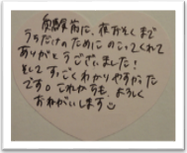 試験前に、夜おそくまで
うちだけのためにのこってくれて
ありがとうございました!
そして すっごくわかりやすかった
です。これからも、よろしく
おねがいします